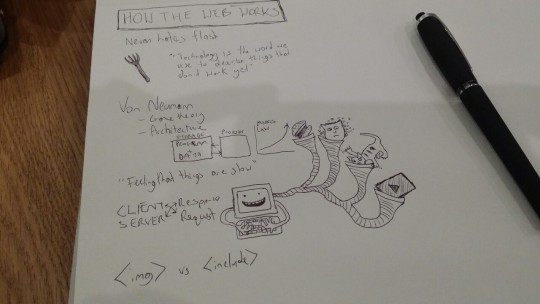 HOW THE WEB WORKS
Neven hates flash
"Technology is the word we
use to describe things that
don't work yet"
Von Neumann
- Game theory
- Architecture
STORAGE
PROGRAM
DATA
MOORES
LAW
"Feeling that things are slow"
CLIENT Response
SERVER Request
<img> vs <include>